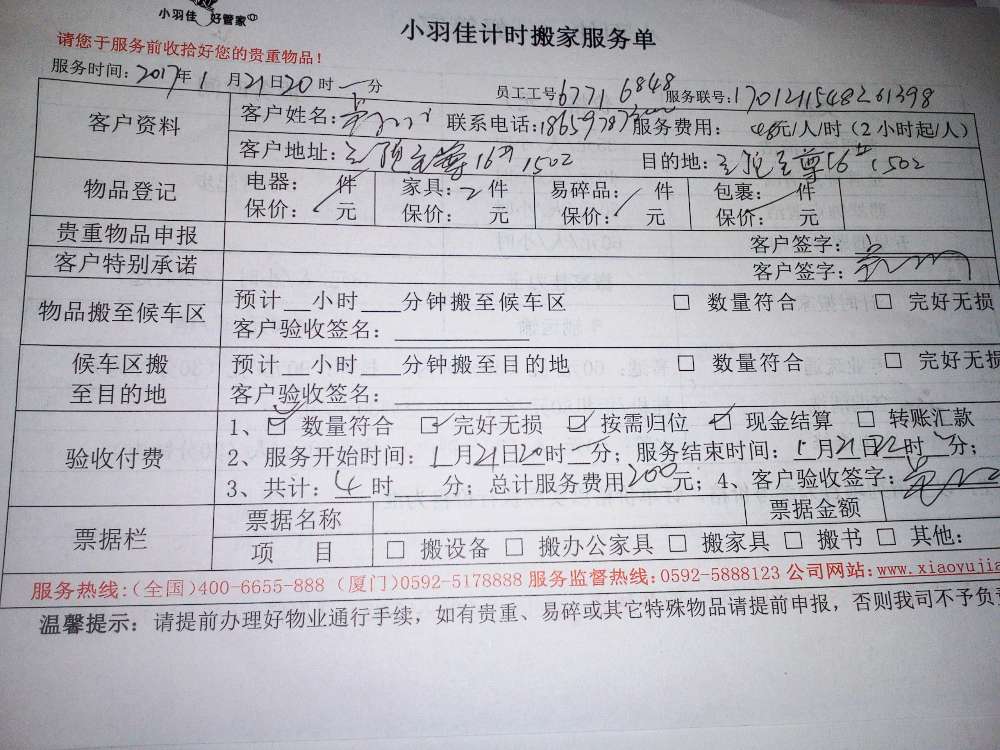 小羽佳 好管家
小羽佳计时搬家服务单
请您于服务前收拾好您的贵重物品!
服务时间:2017年1月21日20时 分 员工工号6771 6848 服务联号:
客户资料 客户姓名: 联系电话: 服务费用: 元/人/时(2小时起/人)
客户地址: 16 1502 目的地: 16 1502
物品登记 电器: 件 家具:2件 易碎品: 件 包裹: 件
保价: 元 保价: 元 保价: 元 保价: 元
贵重物品申报 客户签字:
客户特别承诺 客户签字:
物品搬至候车区 预计__小时___分钟搬至候车区 □ 数量符合 □ 完好无损
客户验收签名:
候车区搬至目的地 预计__小时___分钟搬至目的地 □ 数量符合 □ 完好无损
客户验收签名:
验收付费 1、☑ 数量符合 ☑ 完好无损 ☑ 按需归位 ☑ 现金结算 □ 转账汇款
2、服务开始时间:1月21日20时 分;服务结束时间:1月21日22时 分;
3、共计:4时 分;总计服务费用200元;4、客户验收签字:
票据栏 票据名称 票据金额
项 目 □ 搬设备 □ 搬办公家具 □ 搬家具 □ 搬书 □ 其他:
服务热线:(全国)400-6655-888 (厦门)0592-5178888 服务监督热线:0592-5888123 公司网站:www.xiaoyujia
温馨提示:请提前办理好物业通行手续,如有贵重、易碎或其它特殊物品请提前申报,否则我司不予负